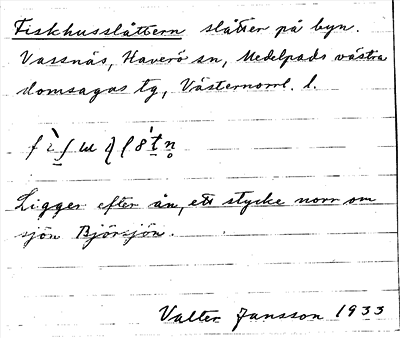 Fiskhusslåttern slåtter på byn.
Vassnäs, Haverö sn, Medelpads västra
domsagas tg, Västernorrl. l.
Ligger efter ån, ett stycke norr om
sjön Björsjön.
Valter Jansson 1933